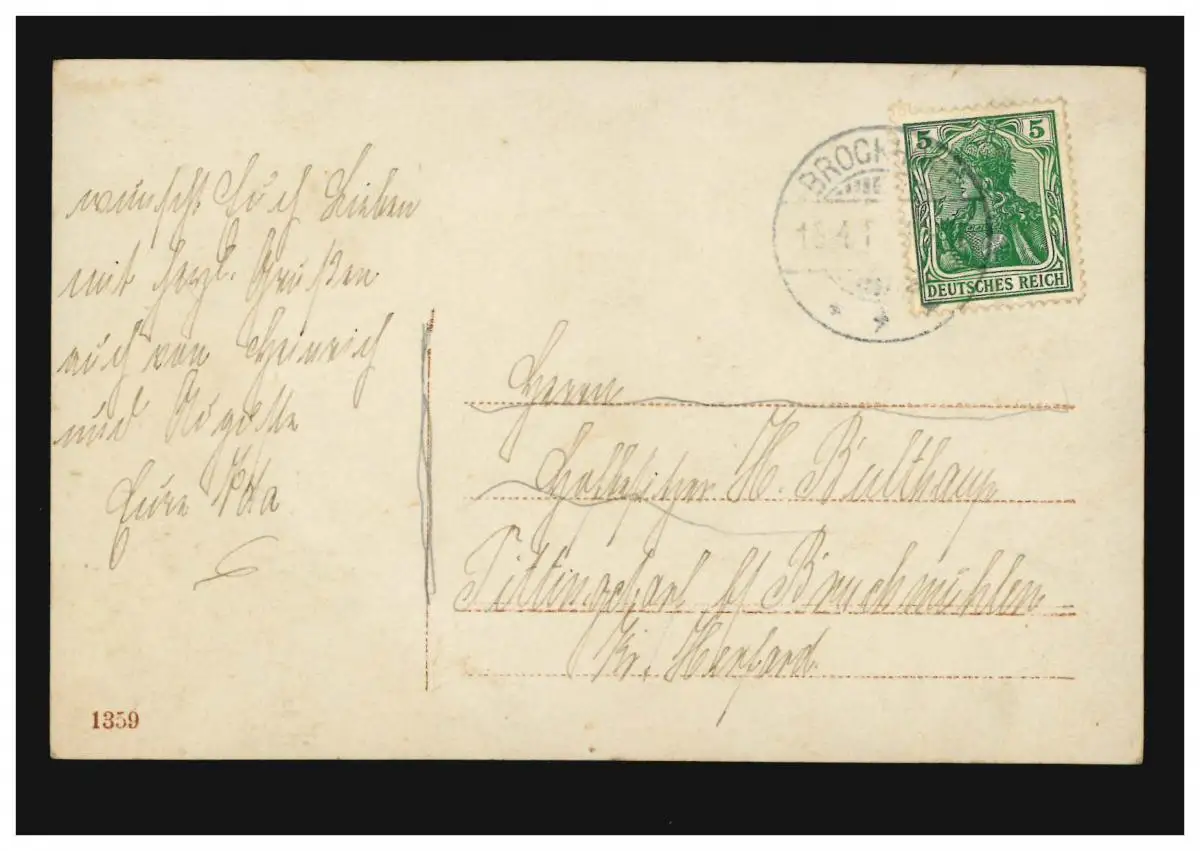 wünscht Euch Lieben
mit herzl. Grüßen
auch von Heinrich
und Auguste
Eure Ida
BROCKH
5 5
DEUTSCHES REICH
Herrn
Hofbesitzer H. Bulthaup
b/ Bruchmühlen
Kr. Herford.
1359